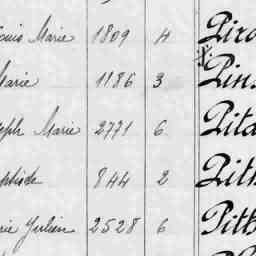 ouis Marie 1809 4 Piro
Marie 1186 3 Pins
seph Marie 2771 6 Pita
aptiste 844 2 Pith
rie Julien 2528 6 Pith